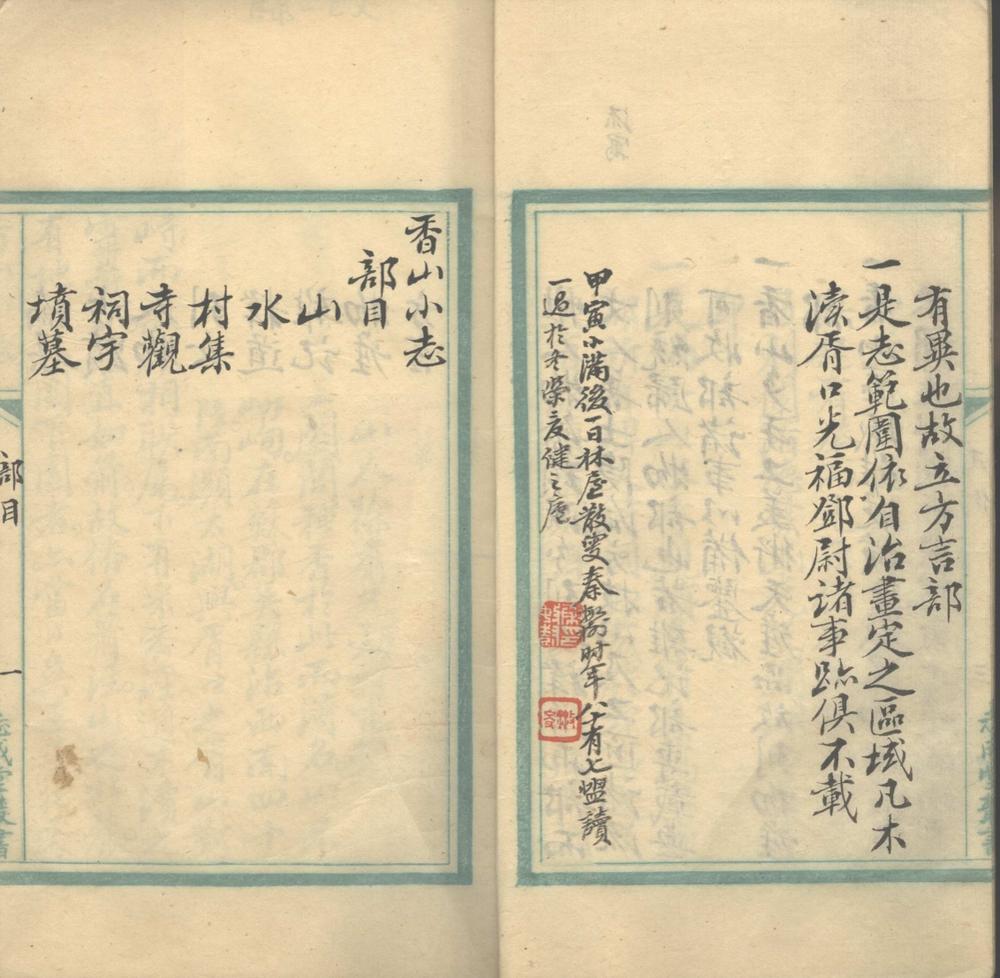 有異也故立方言部
一是志範圍依自治畫定之區域凡木
瀆胥口光福鄧尉諸事跡俱不載
甲寅小滿後一日林屋散叟秦散叟時年八十有七盥讀
一過於冬榮度健之廬
香山小志
部目
山
水
村集
寺觀
祠宇
墳墓
部目
一